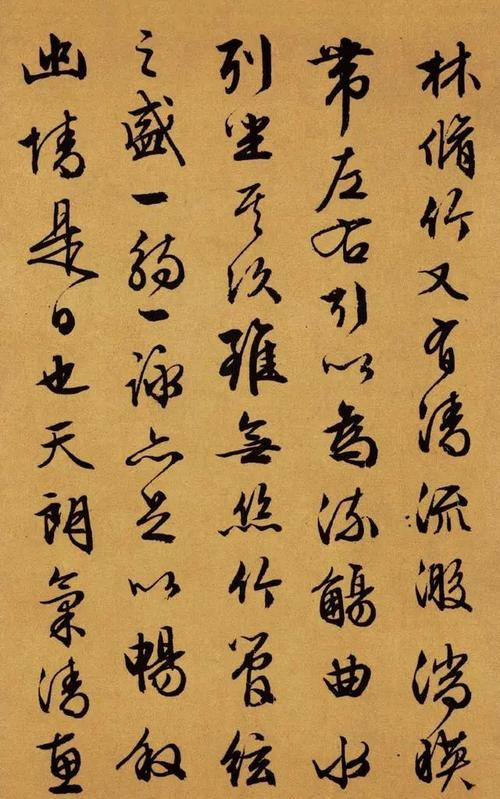 林脩竹又有清流激湍暎
带左右引以為流觴曲水
列坐其次雖無絲竹管絃
之盛一觴一詠亦足以暢叙
幽情是日也天朗氣清惠